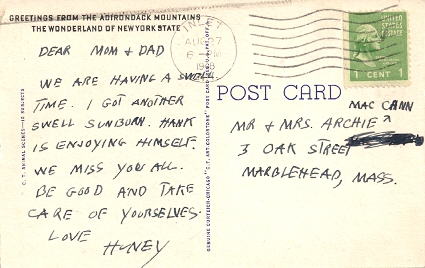 GREETINGS FROM THE ADIRONDACK MOUNTAINS
THE WONDERLAND OF NEW YORK STATE
DEAR MOM & DAD
WE ARE HAVING A SWELL
TIME. I GOT ANOTHER
SWELL SUNBURN. HANK
IS ENJOYING HIMSELF.
WE MISS YOU ALL.
BE GOOD AND TAKE
CARE OF YOURSELVES.
LOVE
HUNEY
C.T. ANIMAL SCENES—10 SUBJECTS
GENUINE CURTEICH-CHICAGO "C.T. ART-COLORTONE" POST CARD (REG. U.S. PAT. OFF.)
INLET
AUG 27
6 PM
UNITED STATES
POSTAGE
1 CENT 1
POST CARD
MAC CANN
MR & MRS. ARCHIE ^
3 OAK STREET
MARBLEHEAD, MASS.